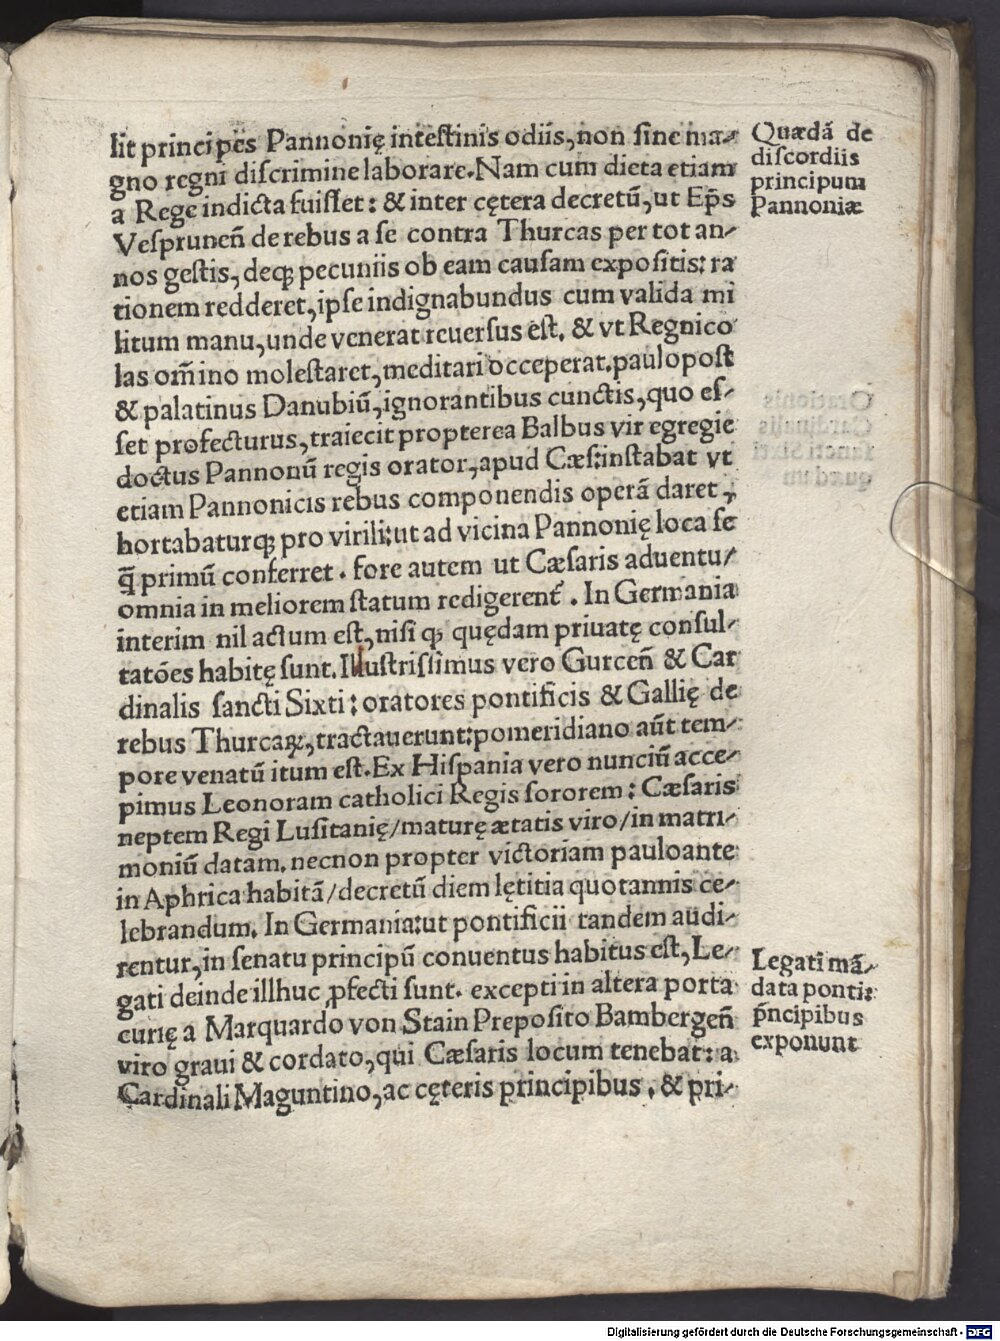 lit principes Pannonię intestinis odiis, non ſine ma-
gno regni diſcrimine laborare. Nam cum dieta etiam
a Rege indicta fuiſſet: & inter cętera decretū, ut Ep̄s
Veſprunen̄ de rebus a ſe contra Thurcas per tot an-
nos geſtis, deq; pecuniis ob eam cauſam expoſitis: ra
tionem redderet, ipſe indignabundus cum valida mi
litum manu, unde venerat reuerſus eſt, & vt Regnico
las om̄ino moleſtaret, meditari occeperat. paulopoſt
& palatinus Danubiū, ignorantibus cunctis, quo eſ-
ſet profecturus, traiecit propterea Balbus vir egregie
doctus Pannonū regis orator, apud Cæſ: inſtabat vt
etiam Pannonicis rebus componendis operā daret,
hortabaturq; pro virili: ut ad vicina Pannonię loca ſe
q̄ primū conferret. fore autem ut Cæſaris aduentu/
omnia in meliorem ſtatum redigerent̄. In Germania
interim nil actum eſt, niſi q; quędam priuatę conſul-
tatōes habitę ſunt. Illuſtriſſimus vero Gurcen̄ & Car
dinalis ſancti Sixti: oratores pontificis & Gallię de
rebus Thurcaꝝ, tractauerunt: pomeridiano aūt tem-
pore venatū itum eſt. Ex Hiſpania vero nunciū acce-
pimus Leonoram catholici Regis ſororem: Cæſaris
neptem Regi Luſitanię/maturę ætatis viro/in matri-
moniū datam. necnon propter victoriam pauloante
in Aphrica habitā/decretū diem lętitia quotannis ce-
lebrandum. In Germania: ut pontificii tandem audi-
rentur, in ſenatu principū conuentus habitus eſt, Le-
gati deinde illhuc ꝓfecti ſunt. excepti in altera porta
curię a Marquardo von Stain Prepoſito Bambergen̄
viro graui & cordato, qui Cæſaris locum tenebat: a
Cardinali Maguntino, ac cęteris principibus, & pri-
Quædā de
diſcordiis
principum
Pannoniæ
Legati mā-
data ponti:
p̄ncipibus
exponunt
Digitalisierung gefördert durch die Deutsche Forschungsgemeinschaft - DFG